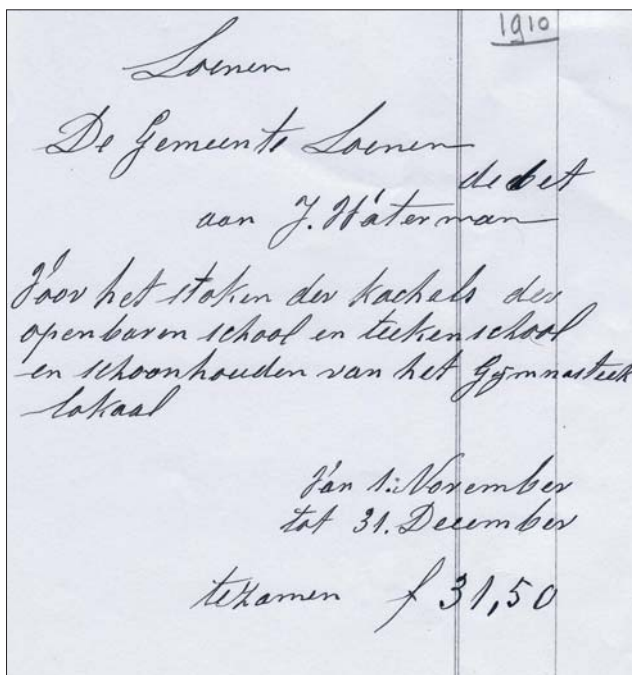 1910
Loenen
De Gemeente Loenen
debet
aan J. Waterman
Voor het stoken der kachels der
openbaren school en teekenschool
en schoonhouden van het Gymnastiek
lokaal
Van 1: November
tot 31. December
tezamen f 31,50